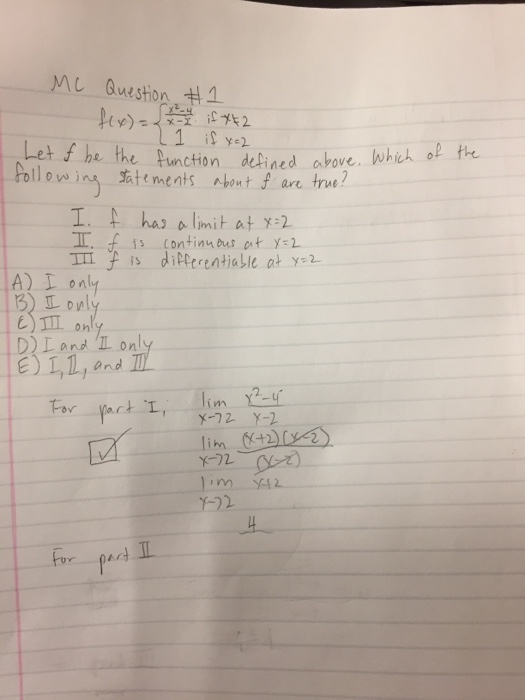 MC Question #1
f(x) = { x²-4/x-2 if x≠2
1 if x=2
Let f be the function defined above. Which of the
following statements about f are true?
I. f has a limit at x=2
II. f is continuous at x=2
III f is differentiable at x=2
A) I only
B) II only
C) III only
D) I and II only
E) I, II, and III
For part I, lim x²-4
x→2 x-2
☑ lim (x+2)(x-2)
x→2 (x-2)
lim x+2
x→2
4
For part II